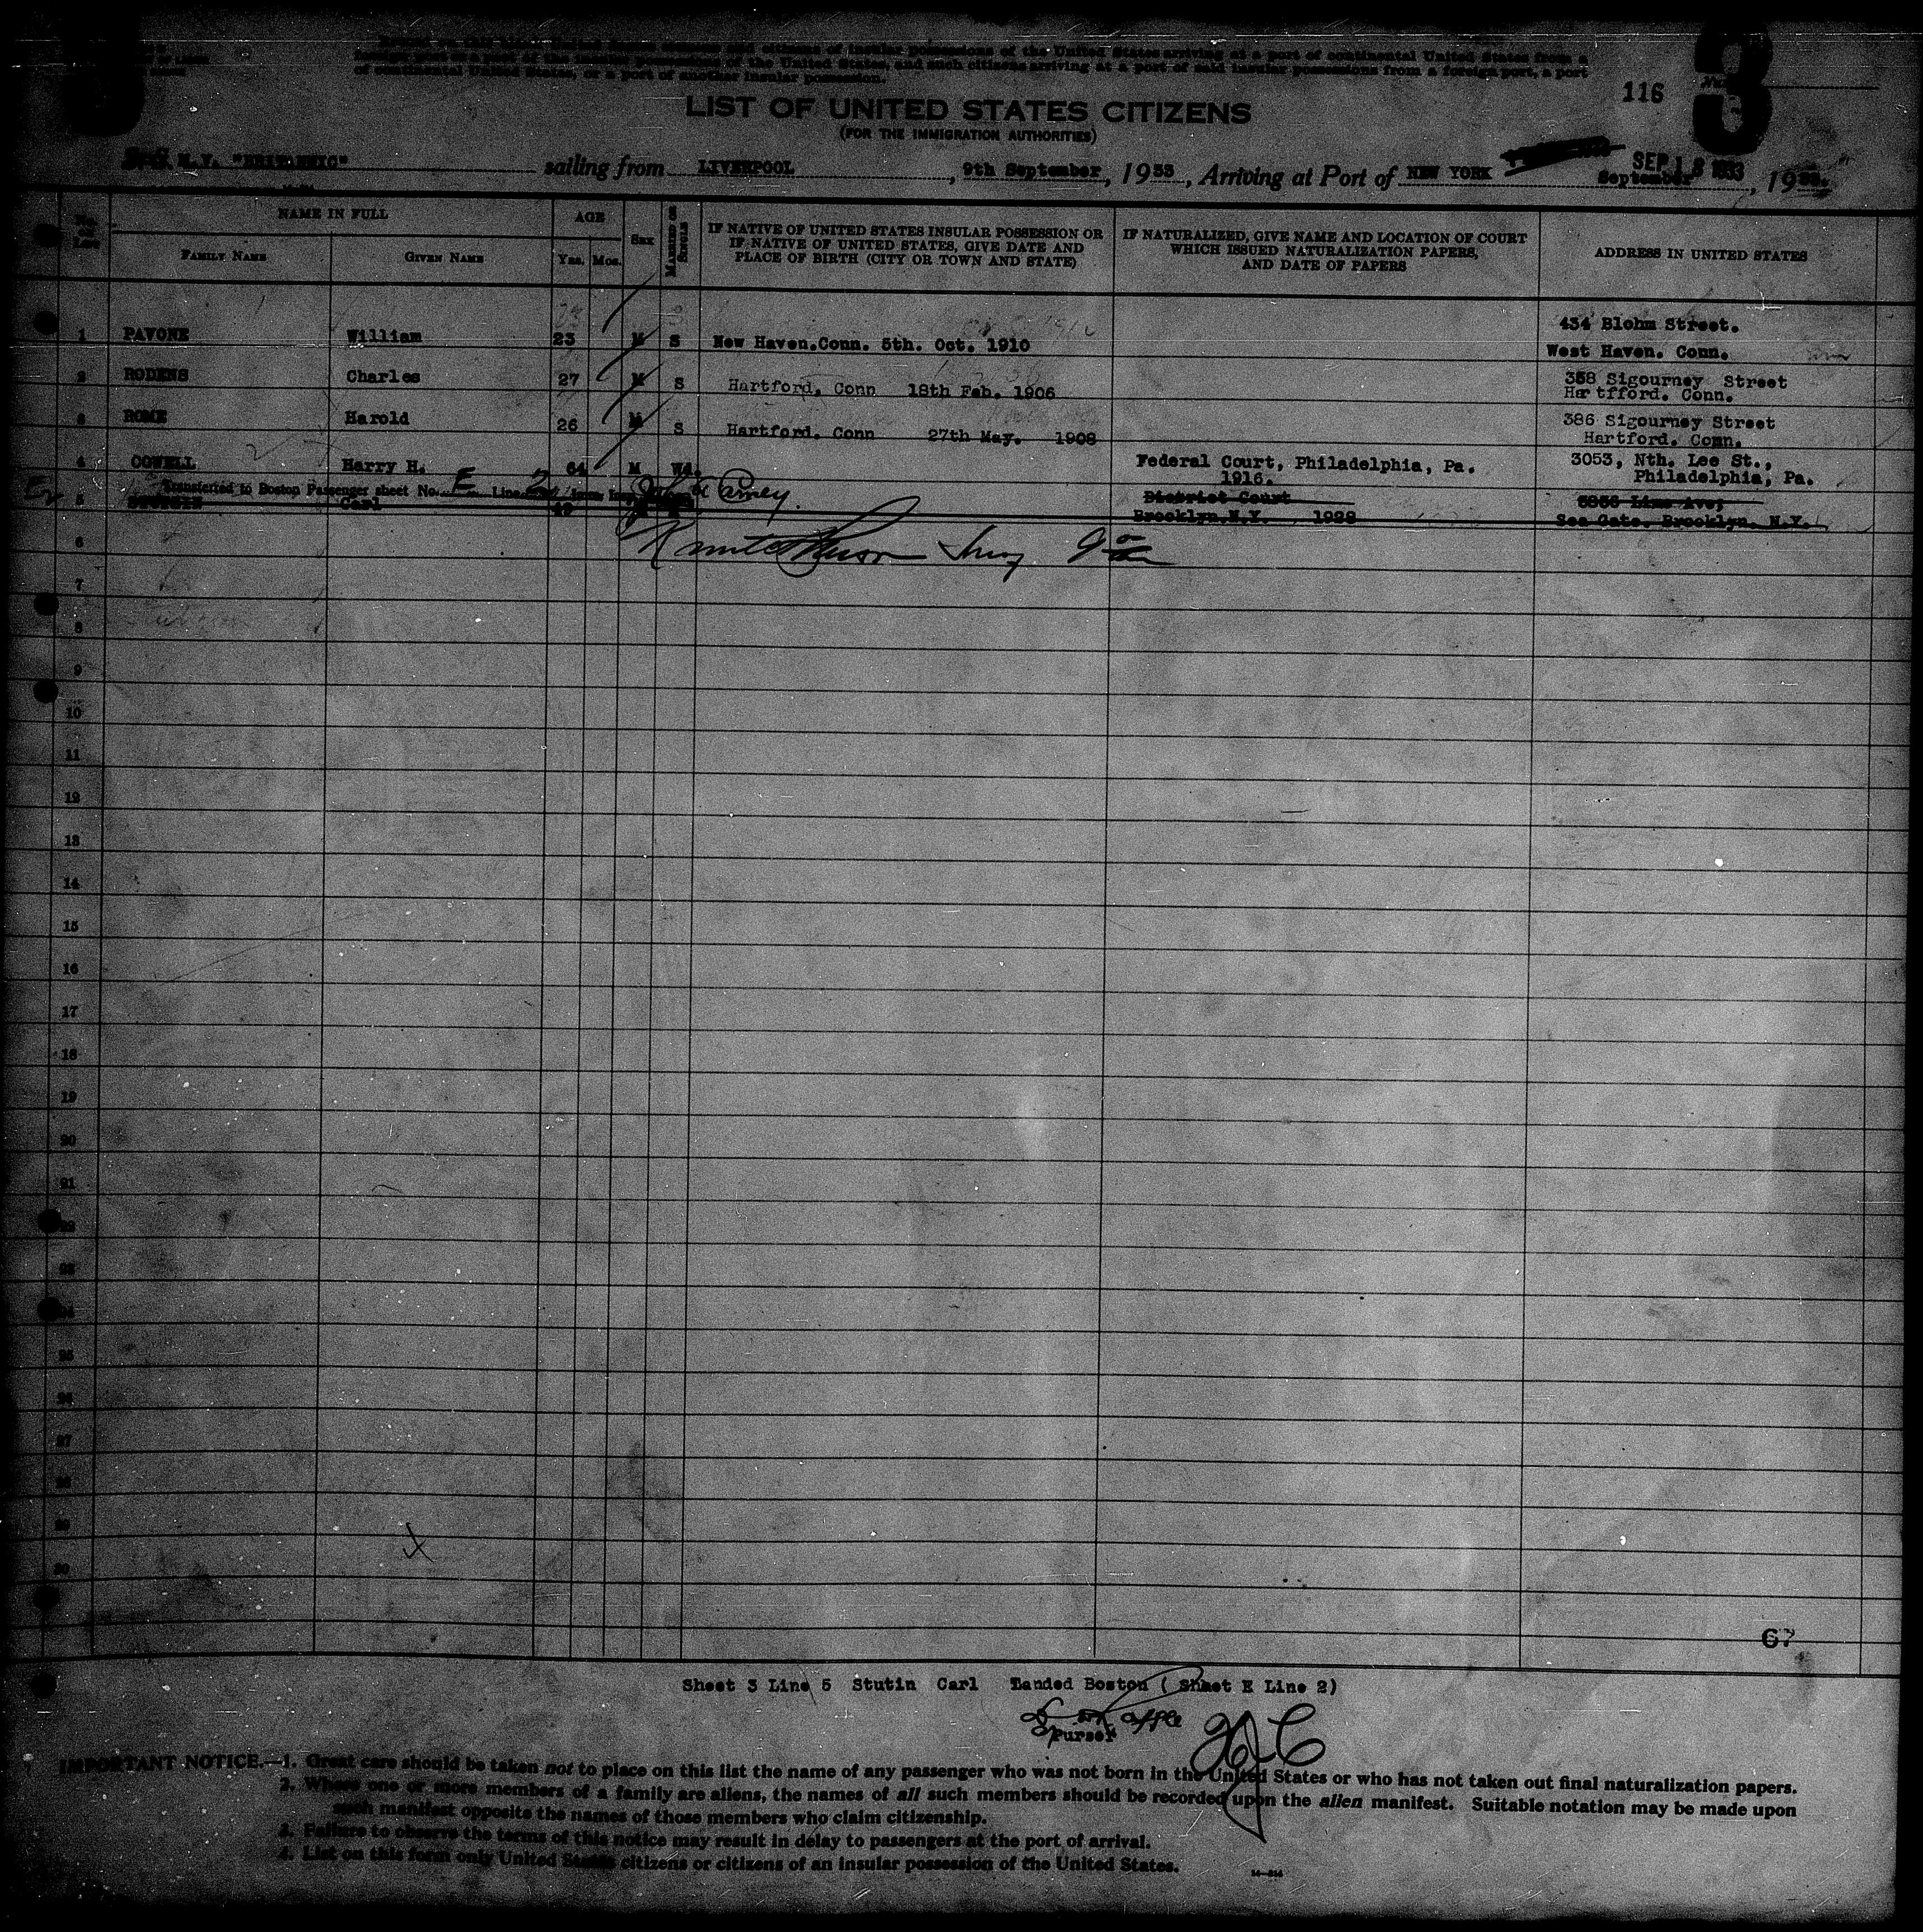 of continental United States, or a port of another insular possession.
LIST OF UNITED STATES CITIZENS
(FOR THE IMMIGRATION AUTHORITIES)
116
3
M. V. "BRITANNIC" sailing from LIVERPOOL, 9th September, 1933, Arriving at Port of NEW YORK September, 1933.
SEP 18 1933
No. on List
NAME IN FULL
FAMILY NAME
GIVEN NAME
AGE
Yrs. Mos.
Sex
MARRIED OR SINGLE
IF NATIVE OF UNITED STATES INSULAR POSSESSION OR
IF NATIVE OF UNITED STATES, GIVE DATE AND
PLACE OF BIRTH (CITY OR TOWN AND STATE)
IF NATURALIZED, GIVE NAME AND LOCATION OF COURT
WHICH ISSUED NATURALIZATION PAPERS,
AND DATE OF PAPERS
ADDRESS IN UNITED STATES
1 PAVONE William 23 M S New Haven.Conn. 5th. Oct. 1910 434 Blohm Street.
West Haven. Conn.
2 RODENS Charles 27 M S Hartford, Conn 18th Feb. 1906 358 Sigourney Street
Hartfford. Conn.
3 ROME Harold 26 M S Hartford. Conn 27th May. 1908 386 Sigourney Street
Hartford. Conn.
4 COWELL Harry H. 64 M Wd. Federal Court, Philadelphia, Pa. 3053, Nth. Lee St.,
1916. Philadelphia, Pa.
Transferred to Boston Passenger sheet No. E Line 2
5 Carl District Court
Brooklyn.N.Y. 1928 Sea Gate. Brooklyn. N.Y.
6
7
8
9
10
11
12
13
14
15
16
17
18
19
20
21
22
23
24
25
26
27
28
29
30
67
Sheet 3 Line 5 Stutin Carl Landed Boston ( Sheet E Line 2)
Purser
IMPORTANT NOTICE.—1. Great care should be taken not to place on this list the name of any passenger who was not born in the United States or who has not taken out final naturalization papers.
2. Where one or more members of a family are aliens, the names of all such members should be recorded upon the alien manifest. Suitable notation may be made upon
such manifest opposite the names of those members who claim citizenship.
3. Failure to observe the terms of this notice may result in delay to passengers at the port of arrival.
4. List on this form only United States citizens or citizens of an insular possession of the United States.